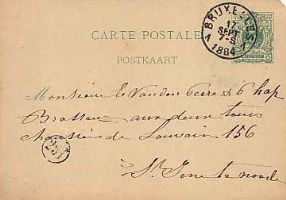 CARTE POSTALE
POSTKAART
BRUXELLES
17
SEPT
7-S
1884
Monsieur E Vanden
Brasseur aux deux tours
chaussée de Louvain 156
St Josse ten noode